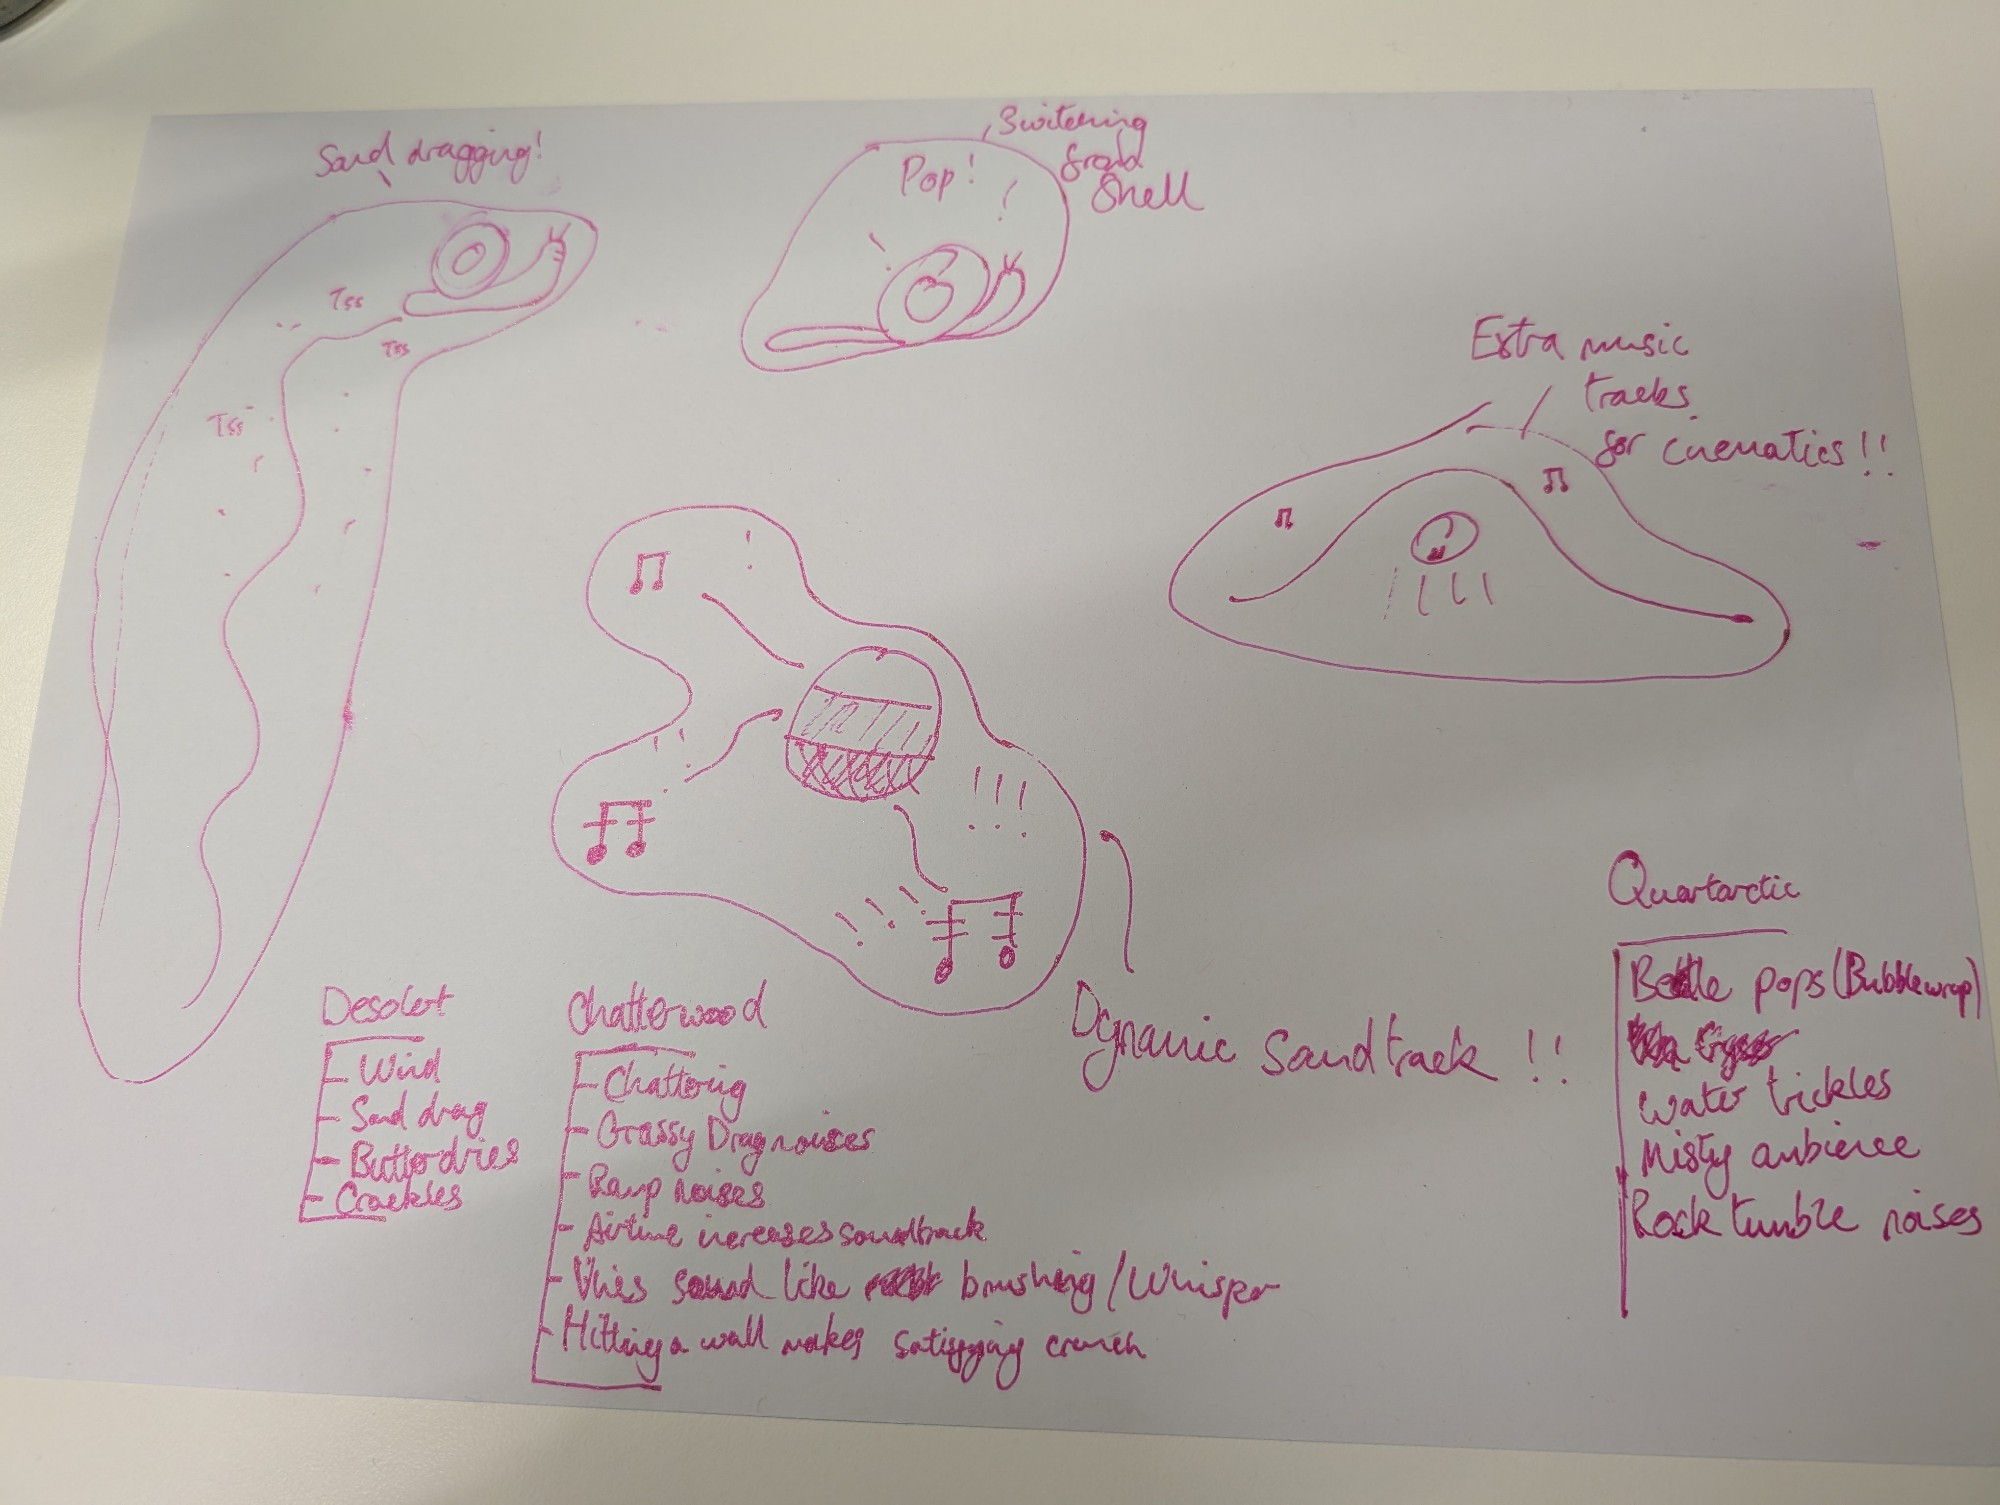 Sand dragging!
Tss
Tss
Tss
Pop!
Switching
from
Shell
Extra music
tracks
for cinematics!!
Dynamic Soundtrack!!
Desolert
- Wind
- Sand drag
- Crackles
Chatterwood
- Chattering
- Grassy Drag noises
- Ramp noises
- Airtime increases soundtrack
- Vines sound like brushing/Whisper
- Hitting a wall makes satisfying crunch
Quartarctic
Beetle pops (Bubblewrap)
Water trickles
Misty ambience
Rock tumble noises